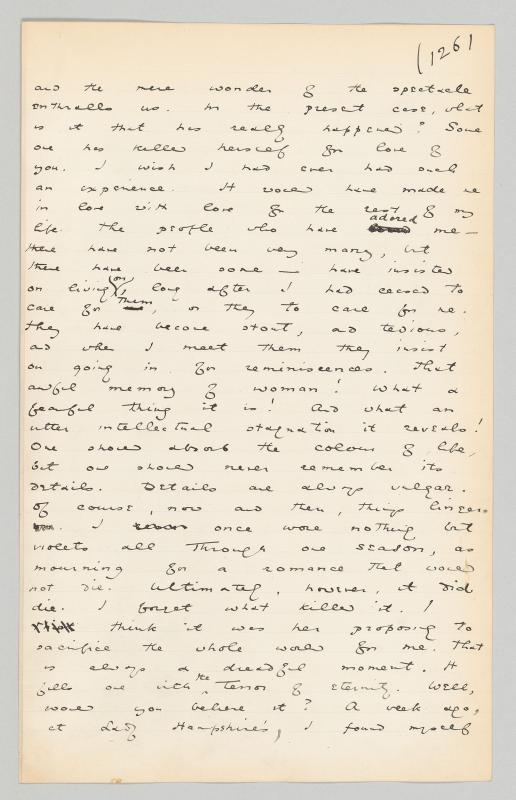 (126)
and the mere wonder of the spectacle
enthralls us. In the present case, what
is it that has really happened? Some
one has killed herself for love of
you. I wish I had ever had such
an experience. It would have made me
in love with love for the rest of my
adored
life. The people who have me —
there have not been very many, but
there have been some — have insisted
on living on, long after I had ceased to
care for them, or they to care for me.
They have become stout, and tedious,
and when I meet them they insist
on going in for reminiscences. That
awful memory of woman! What a
fearful thing it is! And what an
utter intellectual stagnation it reveals!
One should absorb the colour of life,
but one should never remember its
details. Details are always vulgar.
Of course, now and then, things linger.
I once wore nothing but
violets all through one season, as
mourning for a romance that would
not die. Ultimately, however, it did
die. I forget what killed it. I
think it was her proposing to
sacrifice the whole world for me. That
is always a dreadful moment. It
fills one with the terror of eternity. Well,
would you believe it? A week ago,
at Lady Hampshire's, I found myself